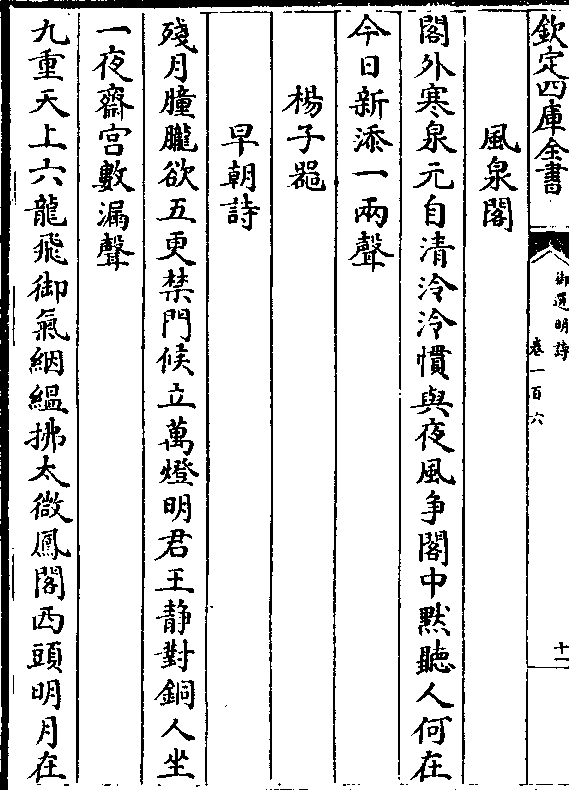 欽定四庫全書
御選明詩
卷一百六
十二
風泉閣
閣外寒泉元自清泠泠慣與夜風争閣中黙聽人何在
今日新添一兩聲
楊子器
早朝詩
殘月朣朧欲五更禁門候立萬燈明君王静對銅人坐
一夜齋宫數漏聲
九重天上六龍飛御氣絪緼拂太微鳳閣西頭明月在